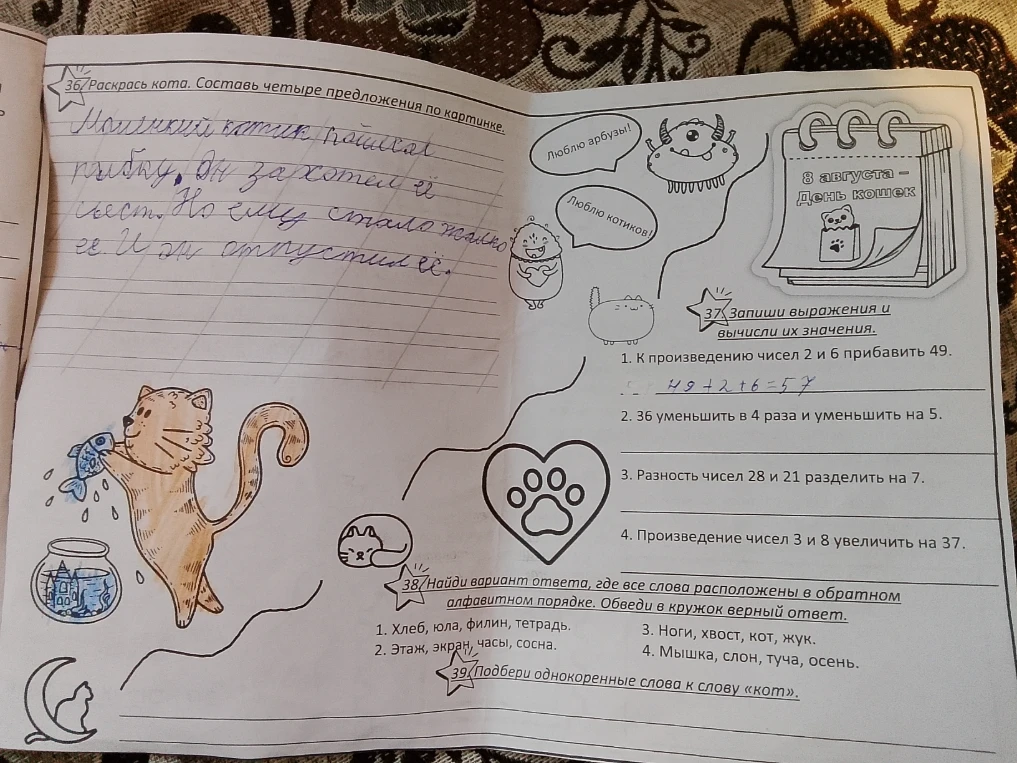 36. Раскрась кота. Составь четыре предложения по картинке.
Маленький котик поймал
рыбку. Он захотел её
съест. Но ему стало жалко
её. И он отпустил её.
Люблю арбузы!
Люблю котиков!
8 августа –
День кошек
37. Запиши выражения и
вычисли их значения.
1. К произведению чисел 2 и 6 прибавить 49.
49+2+6=57
2. 36 уменьшить в 4 раза и уменьшить на 5.
3. Разность чисел 28 и 21 разделить на 7.
4. Произведение чисел 3 и 8 увеличить на 37.
38. Найди вариант ответа, где все слова расположены в обратном
алфавитном порядке. Обведи в кружок верный ответ.
1. Хлеб, юла, филин, тетрадь.
2. Этаж, экран, часы, сосна.
3. Ноги, хвост, кот, жук.
4. Мышка, слон, туча, осень.
39. Подбери однокоренные слова к слову «кот».